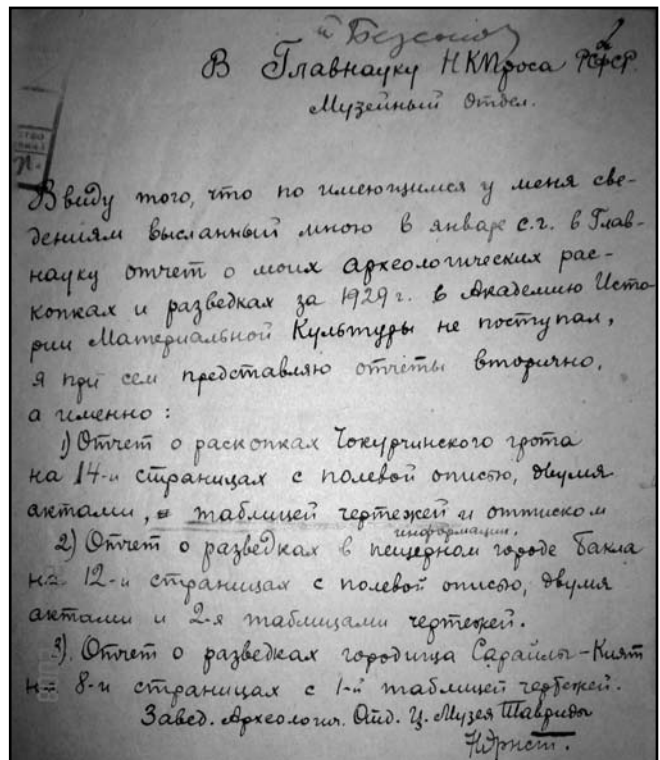 В Главнауку НКПроса РСФСР.
Музейный Отдел.
Ввиду того, что по имеющимся у меня све-
дениям высланный мною в январе с.г. в Глав-
науку отчет о моих археологических рас-
копках и разведках за 1929 г. в Академию Исто-
рии Материальной Культуры не поступал,
я при сем представляю отчеты вторично,
а именно:
1) Отчет о раскопках Чокурчинского грота
на 14-и страницах с полевой описью, двумя
актами, таблицей чертежей и оттиском
информации.
2) Отчет о разведках в пещерном городе Бакла
на 12-и страницах с полевой описью, двумя
актами и 2-я таблицами чертежей.
3). Отчет о разведках городища Сарайлы-Кият
на 8-и страницах с 1-й таблицей чертежей.
Завед. Археологич. Отд. Ц. Музея Тавриды
НЭрнст.